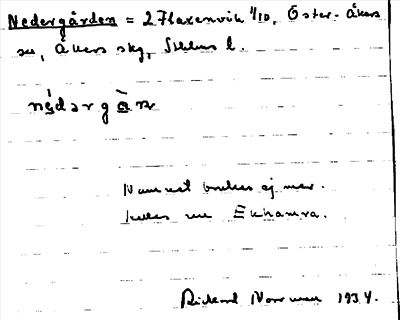 Nedergården = 2 Flaxenvik 1/10, Öster-Åkers
sn, Åkers skg, Sthlms l.
nédərgὰn
Namnet brukas ej mer.
kallas nu Ekhamra.
Rickard Norrman 1934.